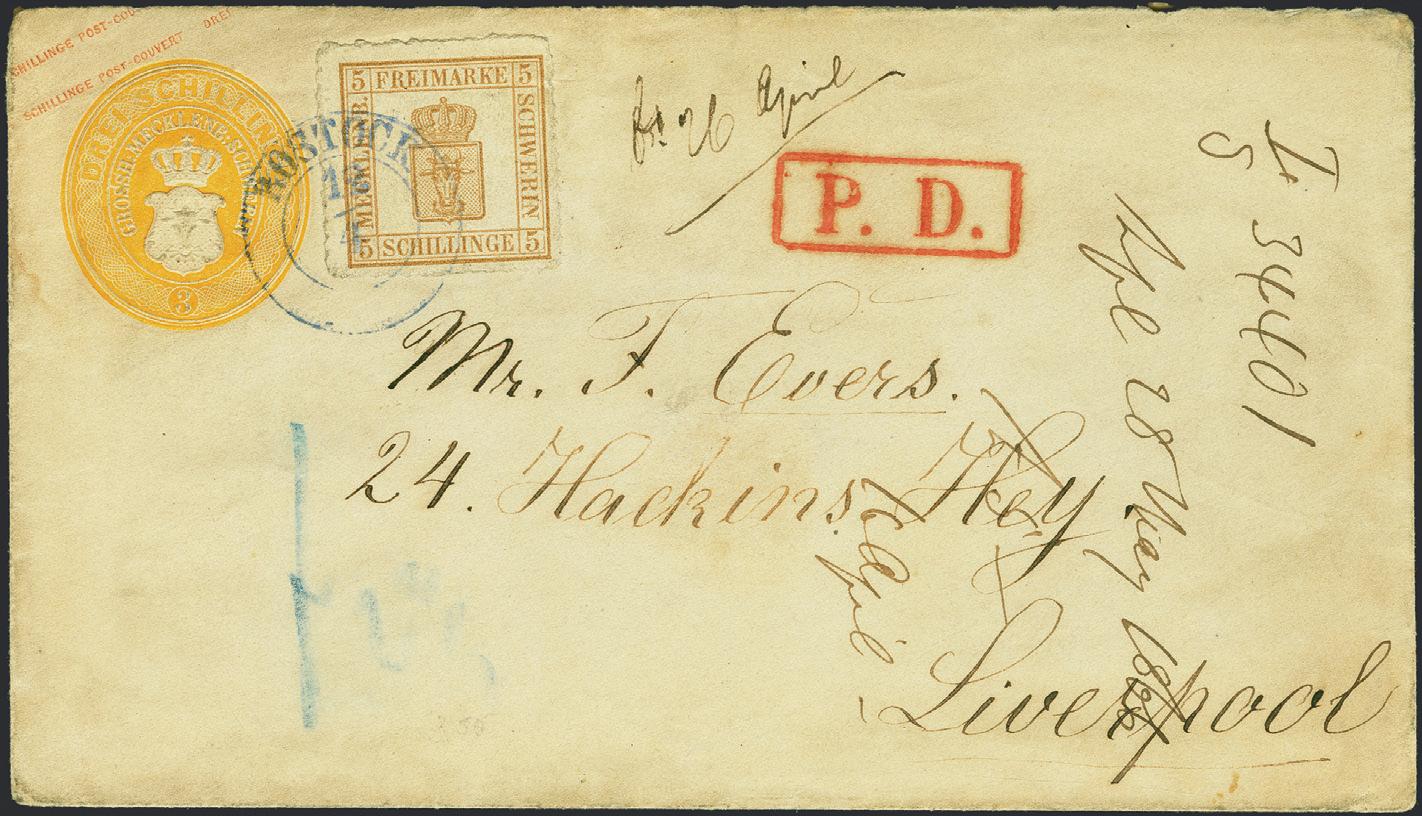 SCHILLINGE POST-COU
DREI
SCHILLINGE POST-COUVERT
DREI SCHILLING
GROSSH. MECKLENB: SCHWERIN
3
5 FREIMARKE 5
MECKLENB.
SCHWERIN
5 SCHILLINGE 5
ROSTOCK
4
26 April
P. D.
Mr. F. Evers.
24. Hackins Hey
Liverpool
5
28 May